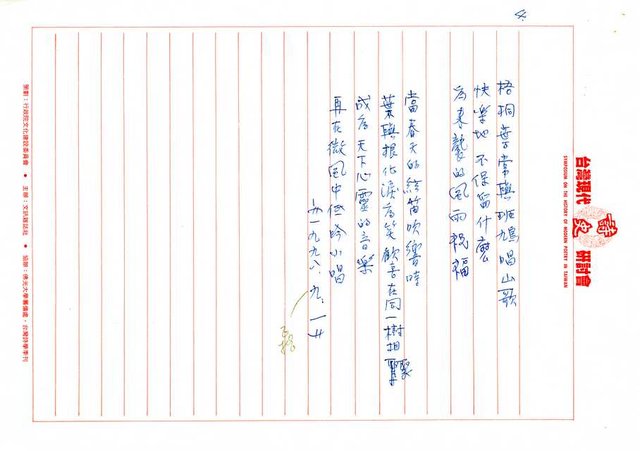 4
台灣現代詩史研討會
SYMPOSIUM ON THE HISTORY OF MODERN POETRY IN TAIWAN
梧桐葉常與班鳩唱山歌
快樂地不保留什麼
為來襲的風雨祝福
當春天的綠笛吹響時
葉與根化淚為笑歡喜在同一樹相聚
成為天下心靈的音樂
再在微風中低吟小唱
一九九八.九.一
策劃：行政院文化建設委員會 ● 主辦：文訊雜誌社 ● 協辦：佛光大學籌備處．台灣詩學季刊